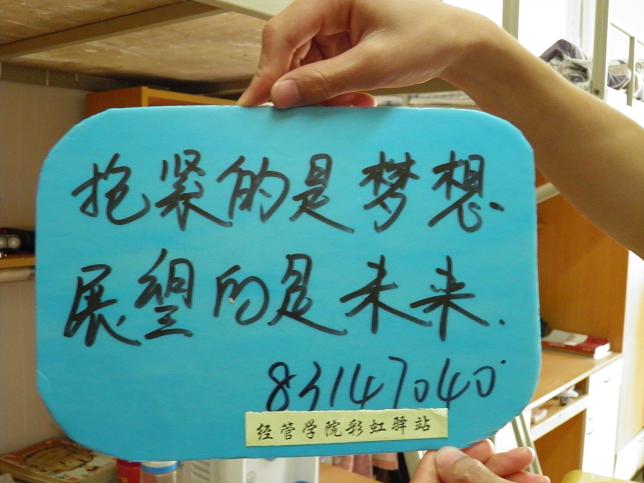 抱紧的是梦想.
展望的是未来.
83147040
经管学院彩虹驿站